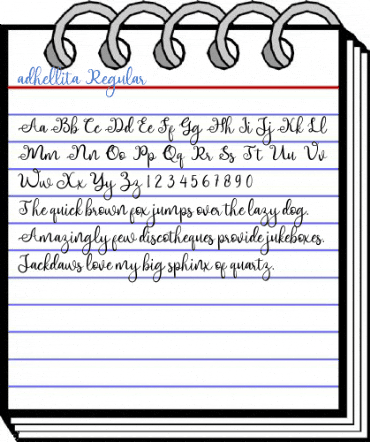 adhellita Regular
Aa Bb Cc Dd Ee Ff Gg Hh Ii Jj Kk Ll
Mm Nn Oo Pp Qq Rr Ss Tt Uu Vv
Ww Xx Yy Zz 1 2 3 4 5 6 7 8 9 0
The quick brown fox jumps over the lazy dog.
Amazingly few discotheques provide jukeboxes.
Jackdaws love my big sphinx of quartz.